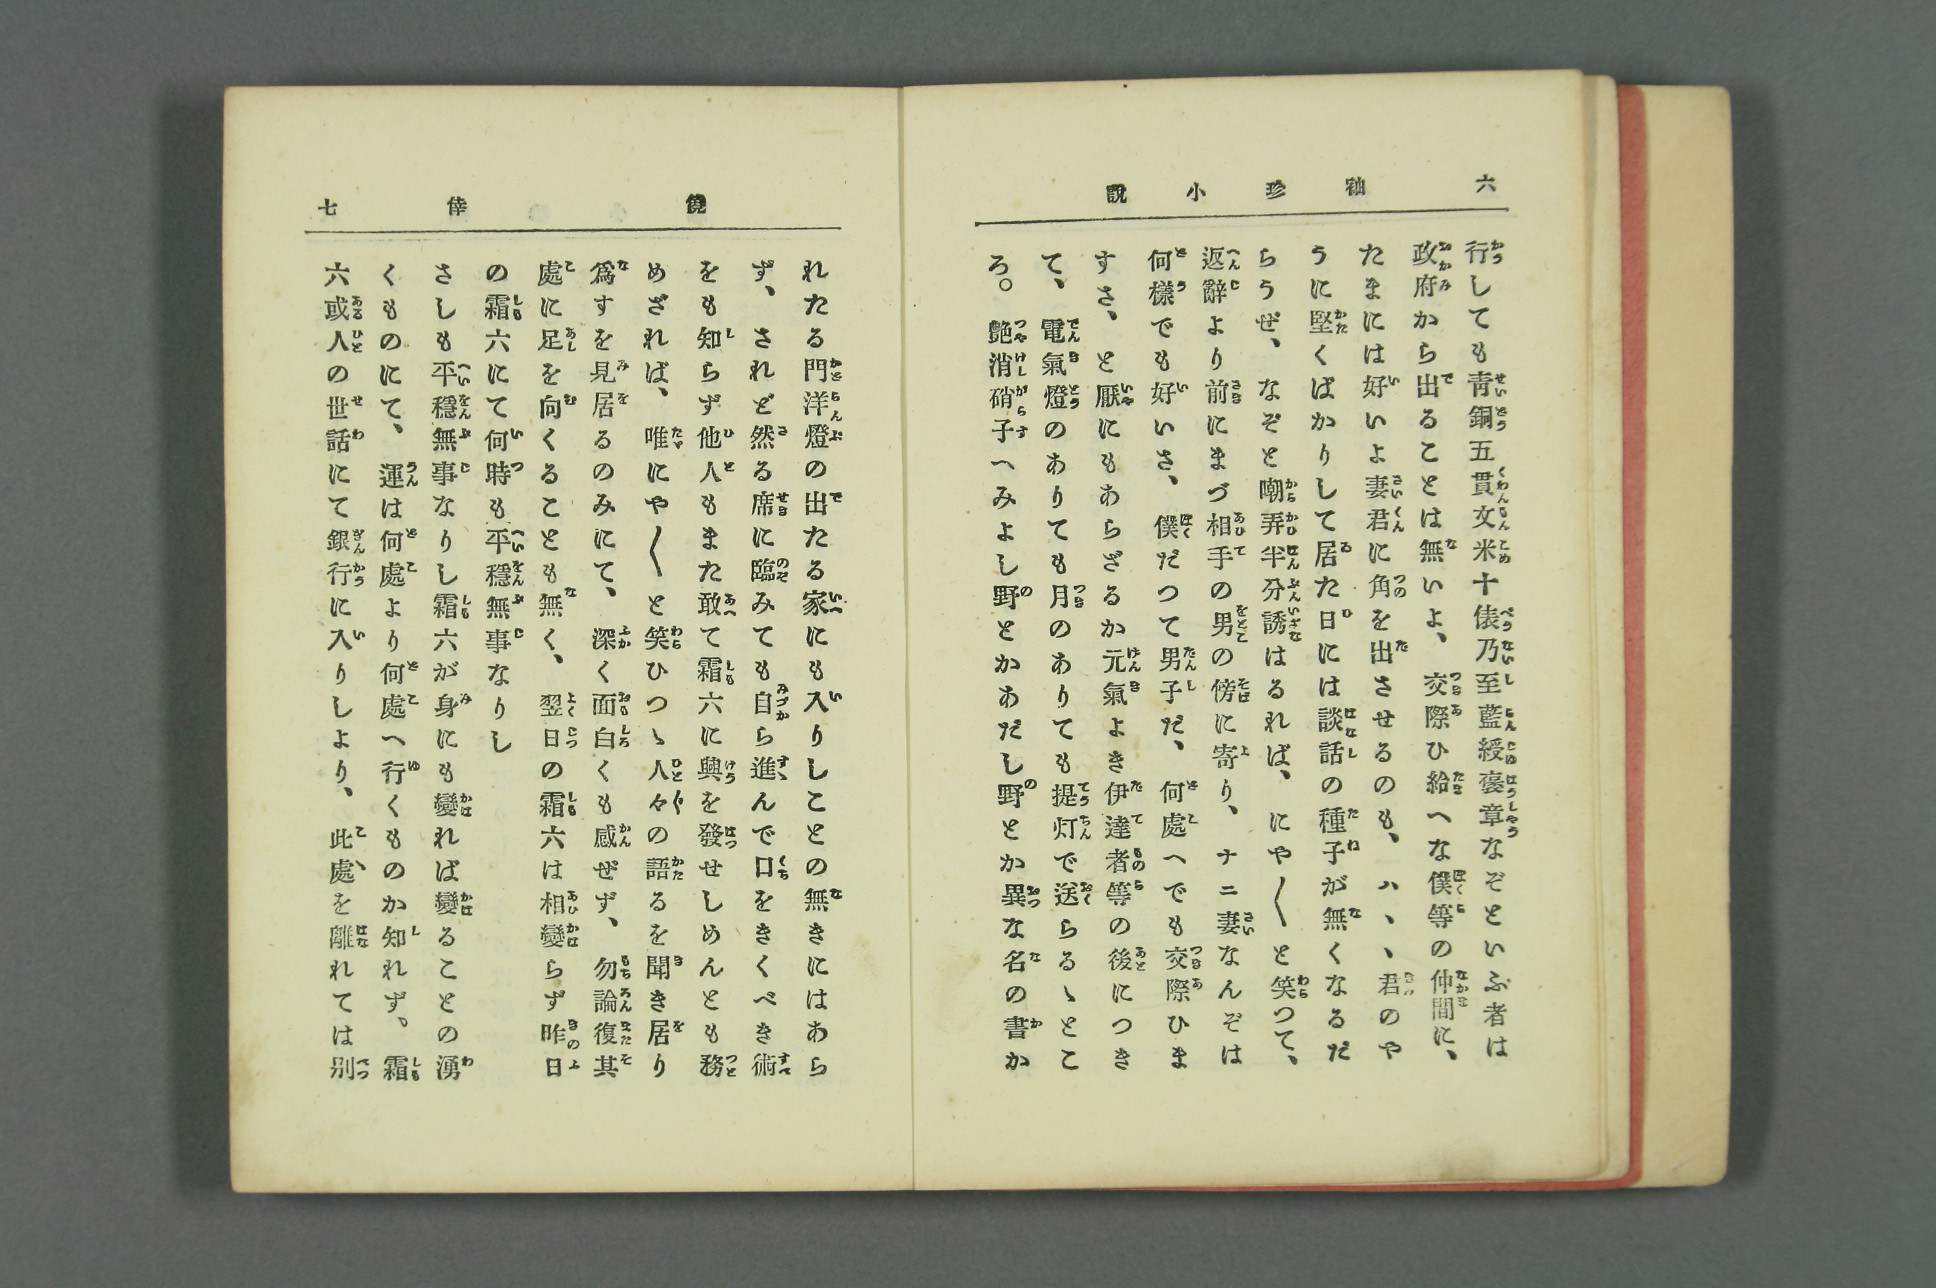 六　袖珍小説
行しても青銅五貫文米十俵乃至藍綬褒章なぞといふ者は
政府から出ることは無いよ、交際ひ給へな僕等の仲間に、
たまには好いよ妻君に角を出させるのも、ハヽヽ君のや
うに堅くばかりして居た日には談話の種子が無くなるだ
らうぜ、なぞと嘲弄半分誘はるれば、にや〱と笑つて、
返辭より前にまづ相手の男の傍に寄り、ナニ妻なんぞは
何樣でも好いさ、僕だつて男子だ、何處へでも交際ひま
すさ、と厭にもあらざるか元氣よき伊達者等の後につき
て、電氣燈のありても月のありても提灯で送らるヽとこ
ろ。艶消硝子へみよし野とかあだし野とか異な名の書か
饒倖　七
れたる門洋燈の出たる家にも入りしことの無きにはあら
ず、されど然る席に臨みても自ら進んで口をきくべき術
をも知らず他人もまた敢て霜六に興を發せしめんとも務
めざれば、唯にや〱と笑ひつヽ人々の語るを聞き居り
爲すを見居るのみにて、深く面白くも感ぜず、勿論復其
處に足を向くることも無く、翌日の霜六は相變らず昨日
の霜六にて何時も平穩無事なりし
さしも平穩無事なりし霜六が身にも變れば變ることの湧
くものにて、運は何處より何處へ行くものか知れず。霜
六或人の世話にて銀行に入りしより、此處を離れては別